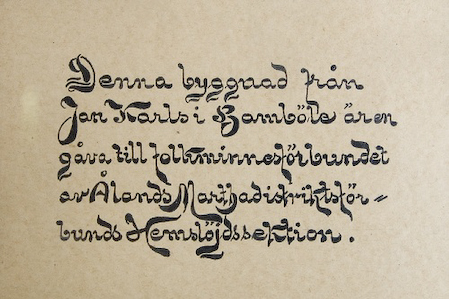 Denna byggnad från
Jan Karls i Bamböle är en
gåva till folkminnesförbundet
av Ålands Marthadistriktsför=
bunds Hemslöjdssektion.